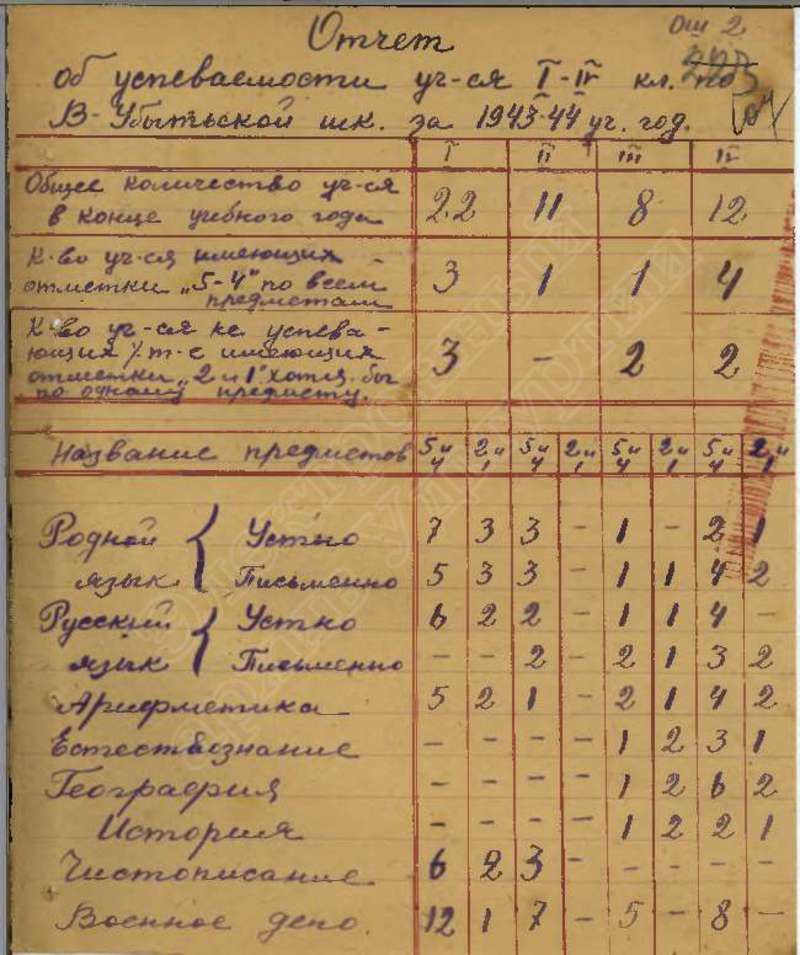 Отчет
об успеваемости уч-ся I-IV кл. по
В-Убытьской шк. за 1943-44 уч. год.
I II III IV
Общее количество уч-ся
в конце учебного года 22 11 8 12
К-во уч-ся имеющих -
отметки „5-4" по всем 3 1 1 4
предметам
К-во уч-ся не успева-
ющих /т-е имеющих 3 - 2 2
отметки „2 и 1" хотя бы
по одному предмету.
Название предметов 5и4 2и1 5и4 2и1 5и4 2и1 5и4 2и1
Родной { Устно 7 3 3 - 1 - 2 1
язык Письменно 5 3 3 - 1 1 4 2
Русский { Устно 6 2 2 - 1 1 4 -
язык Письменно - - 2 - 2 1 3 2
Арифметика 5 2 1 - 2 1 4 2
Естествознание - - - - 1 2 3 1
География - - - - 1 2 6 2
История - - - - 1 2 2 1
Чистописание 6 2 3 - - - - -
Военное дело. 12 1 7 - 5 - 8 -